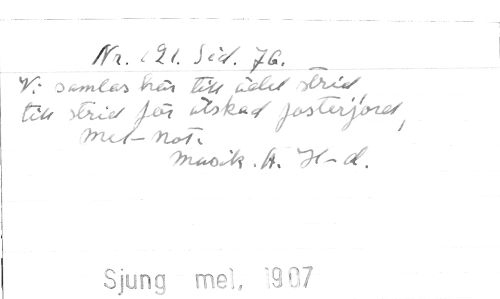 Nr. 121. Sid. 76.
Vi samlas här till ädel strid,
till strid för älskad fosterjord,
Mel-not.
Musik. A. H-d.
Sjung mel, 1907